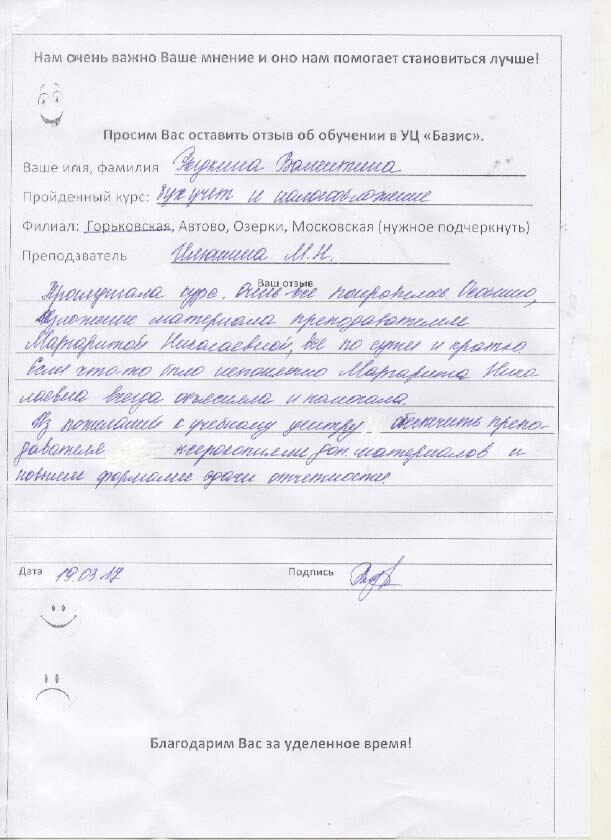 Нам очень важно Ваше мнение и оно нам помогает становиться лучше!
Просим Вас оставить отзыв об обучении в УЦ «Базис».
Ваше имя, фамилия Валентина
Пройденный курс: Бух учет и налогообложение
Филиал: Горьковская, Автово, Озерки, Московская (нужное подчеркнуть)
Преподаватель М.Н.
Ваш отзыв
Прослушала курс. Очень все понравилось. Особенно,
изложение материала преподавателем
Маргаритой Николаевной, все по сути и кратко.
Если что-то было непонятно Маргарита Нико
лаевна всегда объясняла и помогала.
Из пожеланий к учебному центру обеспечить препо-
давателя ксерокопиями доп. материалов и
новыми формами сдачи отчетности.
Дата 19.03.17 Подпись
Благодарим Вас за уделенное время!